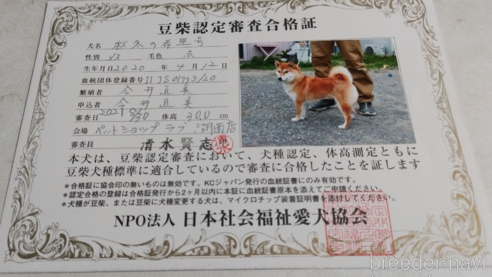 豆柴認定審査合格証
犬名
性別 毛色
生年月日 2020年4月12日
血統団体登録番号
繁殖者 今井
申込者 今井
審査日 体高 30.0cm
会場 ペットショップラブ
審査員 清水賢志
本犬は、豆柴認定審査において、犬種認定、体高測定ともに
豆柴犬種標準に適合しているので審査に合格したことを証します
*合格証に協会印の無いものは無効です。KCジャパン発行の血統証書にのみ有効です。
*認定合格の登録は合格証発行から2ヶ月以内に本証に血統証書原本を添えてご申請ください。
*犬種が豆柴、または豆柴に犬種変更する犬は、マイクロチップ装着証明書を添付してください。
NPO法人 日本社会福祉愛犬協会
breeder-navi